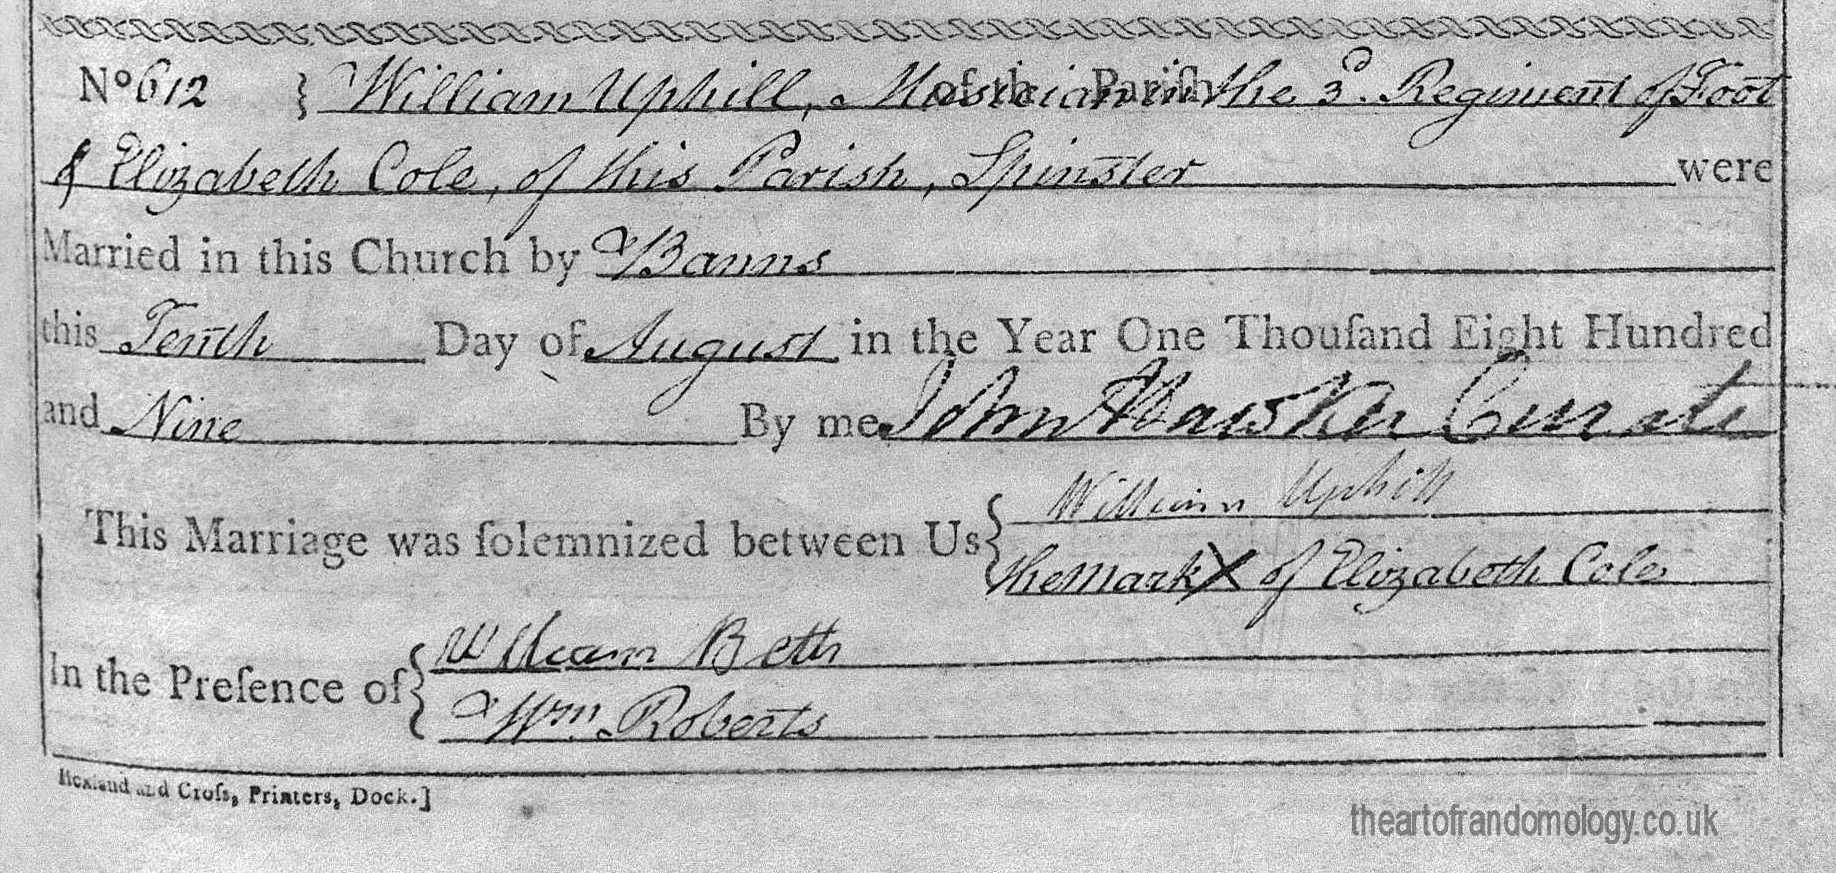 No 612 } William Uphill, Musician in the 3d. Regiment of Foot
of the Parish
& Elizabeth Cole, of this Parish, Spinster were
Married in this Church by Banns
this Tenth Day of August in the Year One Thouſand Eight Hundred
and Nine By me John Hawker Curate
This Marriage was ſolemnized between Us { William Uphill
the Mark X of Elizabeth Cole
In the Preſence of { William Beth
Wm. Roberts
Hoxland and Croſs, Printers, Dock.]
theartofrandomology.co.uk